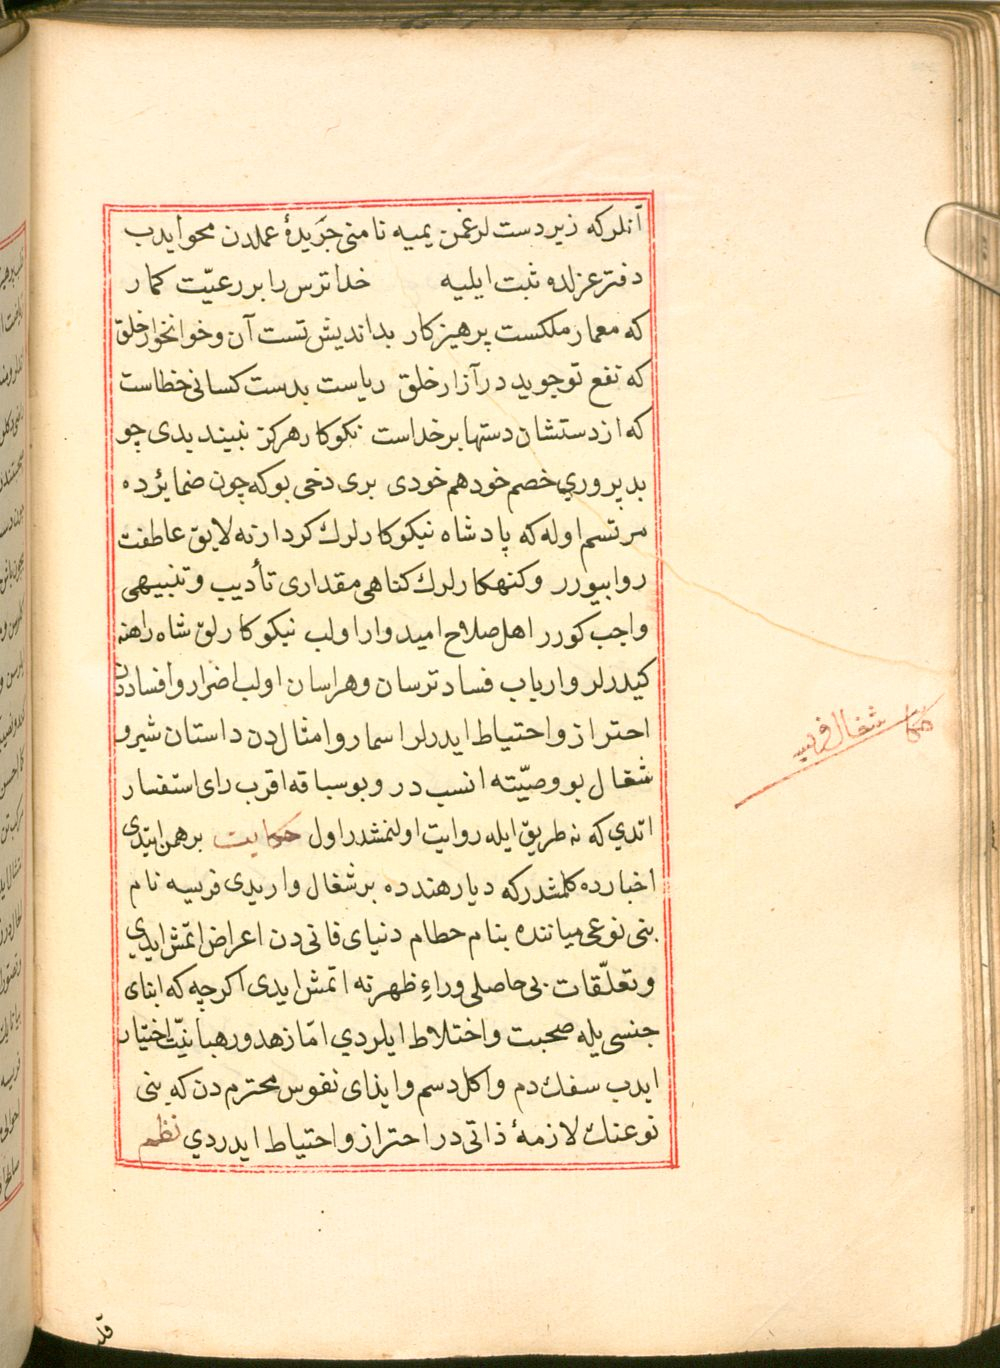 آنلركه زيردست لر غمن يميه نامنى جريدۀ عملدن محو ايدب
دفتر عزلده ثبت ايليه خداترس را بر رعيّت كمار
كه معمار ملكست پرهيزكار بدانديش تست آن و خوانخوار خلق
كه نفع تو جويد در آزار خلق رياست بدست كسانى خطاست
كه از دستشان دستها بر خداست نكوكار هركز نبيند بدى چو
بد پروري خصم خود هم خودى برى دخى بوكه چون ضمايرده
مرتسم اوله كه پادشاه نيكوكارلرك كردارنه لايق عاطفت
روا بيورر و كنهكارلرك كناهى مقدارى تأديب و تنبيهى
واجب كورر اهل صلاح اميدوار اولب نيكوكارلق شاه راهنه
كيدرلر و ارباب فساد ترسان و هراسان اولب اضرار و افساددن
احتراز و احتياط ايدرلر اسمار و امثالدن داستان شير و
شغال بو وصيّته انسب در و بو سباقه اقرب راى استفسار
اتدي كه نه طريق ايله روايت اولنمشدر اول حكايت برهمن ايتدى
اخبارده كلمشدركه ديار هندده بر شغال واريدى فريسه نام
بنى نوعى مياننده بنام حطام دنياى فانى دن اعراض اتمش ايدي
و تعلّقات بى حاصلى وراءِ ظهرنه اتمش ايدى اكرچه كه ابناى
جنسى يله صحبت و اختلاط ايلردي امّا زهد و رهبانيّت اختيار
ايدب سفك دم و اكل دسم و ايذاى نفوس محترم دن كه بنى
نوعنك لازمۀ ذاتى در احتراز و احتياط ايدردي نظم
حكايت شغال فريسه